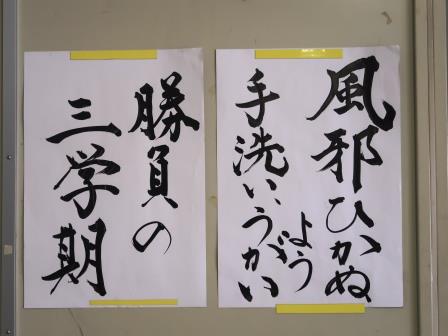 風邪ひかぬ
よう
手洗い、うがい
勝負の
三学期